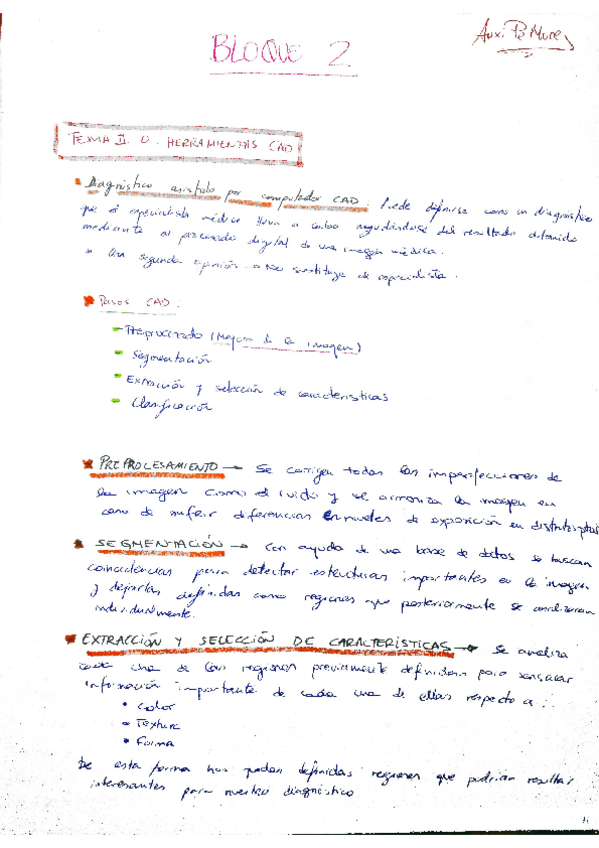 BLOQUE 2
TEMA II. HERRAMIENTAS CAD
Diagnóstico asistido por computador CAD: Puede definirse como un diagnóstico
que el especialista médico lleva a cabo ayudándose del resultado obtenido
mediante el procesado digital de una imagen médica.
Una segunda opinión → No sustituye al especialista.
Pasos CAD:
- Preprocesado (Mejora de la imagen)
- Segmentación
- Extracción y selección de características
- Clasificación
PREPROCESAMIENTO → Se corrigen todas las imperfecciones de
la imagen como el ruido y se armoniza la imagen en
caso de sufrir diferencias en niveles de exposición en distintas
SEGMENTACIÓN → Con ayuda de una base de datos se buscan
coincidencias para detectar estructuras importantes en la imagen
y dejarlas definidas como regiones que posteriormente se analizaran
individualmente.
EXTRACCIÓN Y SELECCIÓN DE CARACTERÍSTICAS → Se analiza
cada una de las regiones previamente definidas para
información importante de cada una de ellas respecto a:
• Color
• Textura
• Forma
De esta forma nos quedan definidas regiones que podrían resultar
interesantes para nuestro diagnóstico